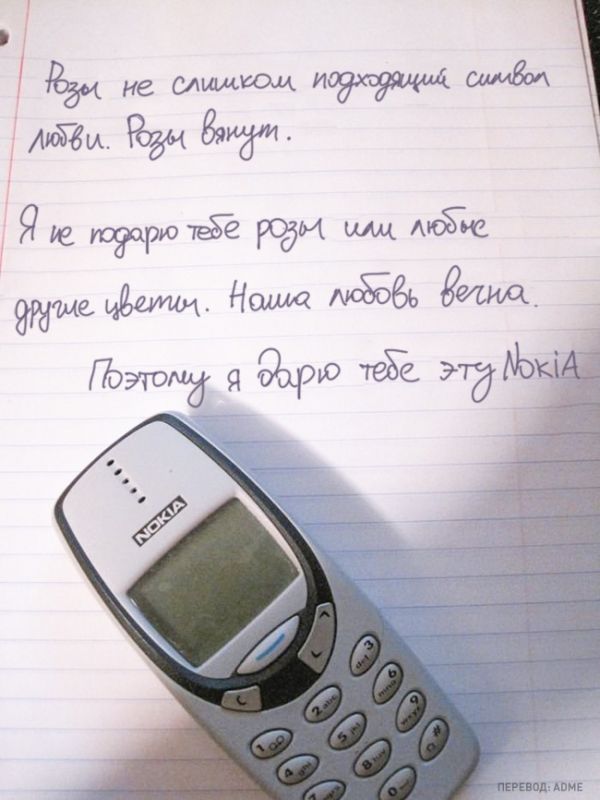 Розы не слишком подходящий символ
любви. Розы вянут.
Я не подарю тебе розы или любые
другие цветы. Наша любовь вечна.
Поэтому я дарю тебе эту NokiA
NOKIA
C
1
2 abc
3 def
4 ghi
5 jkl
6 mno
8 tuv
9 wxyz
0
#
ПЕРЕВОД: ADME